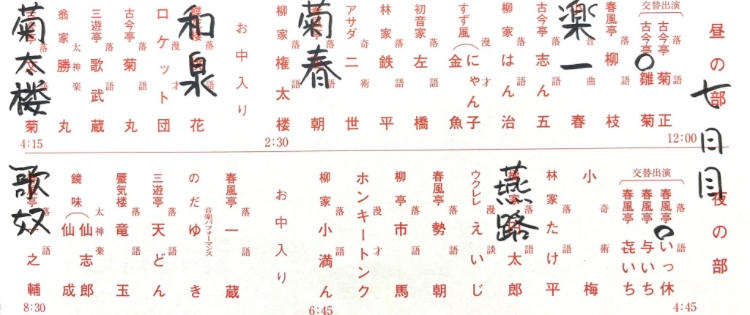 七日目
昼の部
12:00
交替出演
落語 古今亭 菊正
古今亭 雛菊
春風亭 柳枝 落語
楽一
音曲 春
古今亭 志ん五 落語
柳家 はん治 落語
すず風 にゃん子 金魚 漫才
初音家 左橋 落語
林家 鉄平 落語
アサダ二世 奇術
菊春
朝
柳家 権太楼 落語
2:30
お中入り
和泉
花
ロケット団 漫才
古今亭 菊丸 落語
三遊亭 歌武蔵 落語
翁家 勝丸 太神楽
菊太楼
菊
4:15
夜の部
4:45
交替出演
落語 春風亭 いっ休
春風亭 与いち
春風亭 㐂いち
小梅 奇術
林家 たけ平 落語
燕路
太郎
ウクレレ えいじ 漫談
春風亭 勢朝 落語
柳亭 市馬 落語
ホンキートンク 漫才
柳家 小満ん 落語
6:45
お中入り
春風亭 一蔵 落語
のだゆき 音楽パフォーマンス
三遊亭 天どん 落語
蜃気楼 竜玉 落語
鏡味 仙志郎 仙成 太神楽
歌奴
之輔
8:30